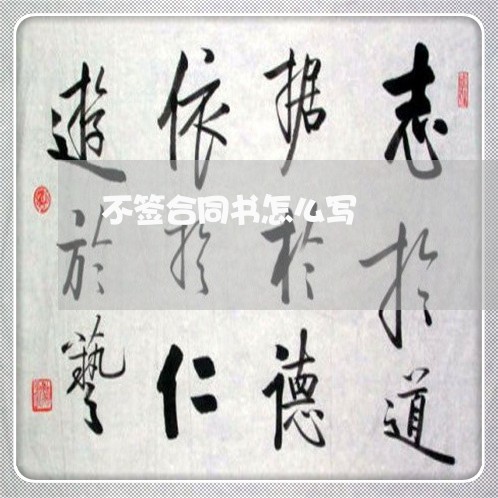 志於道
据於德
依於仁
遊於藝
不签合同书怎么写